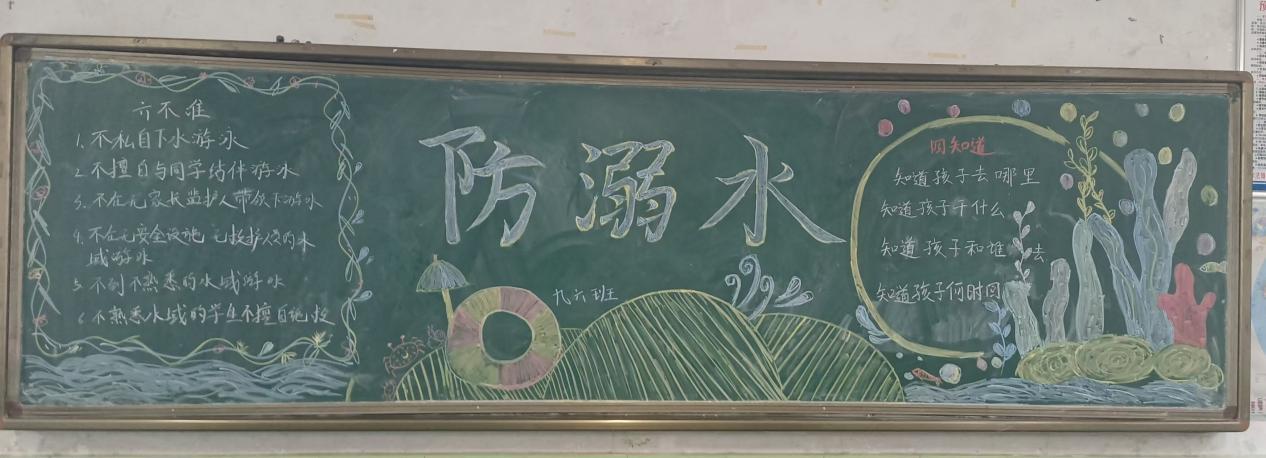 六不准
1. 不私自下水游泳
2. 不擅自与同学结伴游水
3. 不在无家长监护人带领下游水
4. 不在无安全设施 无救护人员的水
域游水
5. 不到不熟悉的水域游水
6. 不熟悉水域的学生不擅自施救
防溺水
九六班
四知道
知道孩子去哪里
知道孩子干什么
知道孩子和谁去
知道孩子何时回